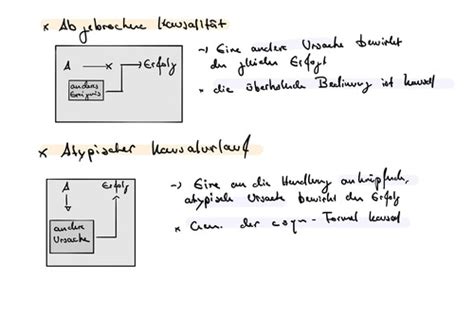 × Abgebrochene Kausalität
A → × → Erfolg
anderes
Ereignis
→ Eine andere Ursache bewirkt
den gleichen Erfolg
* die überholende Bedingung ist kausal
× Atypischer Kausalverlauf
A Erfolg
andere
Ursache
→ Eine an die Handlung anknüpfende,
atypische Ursache bewirkt den Erfolg
* Gem. der csqn-Formel kausal